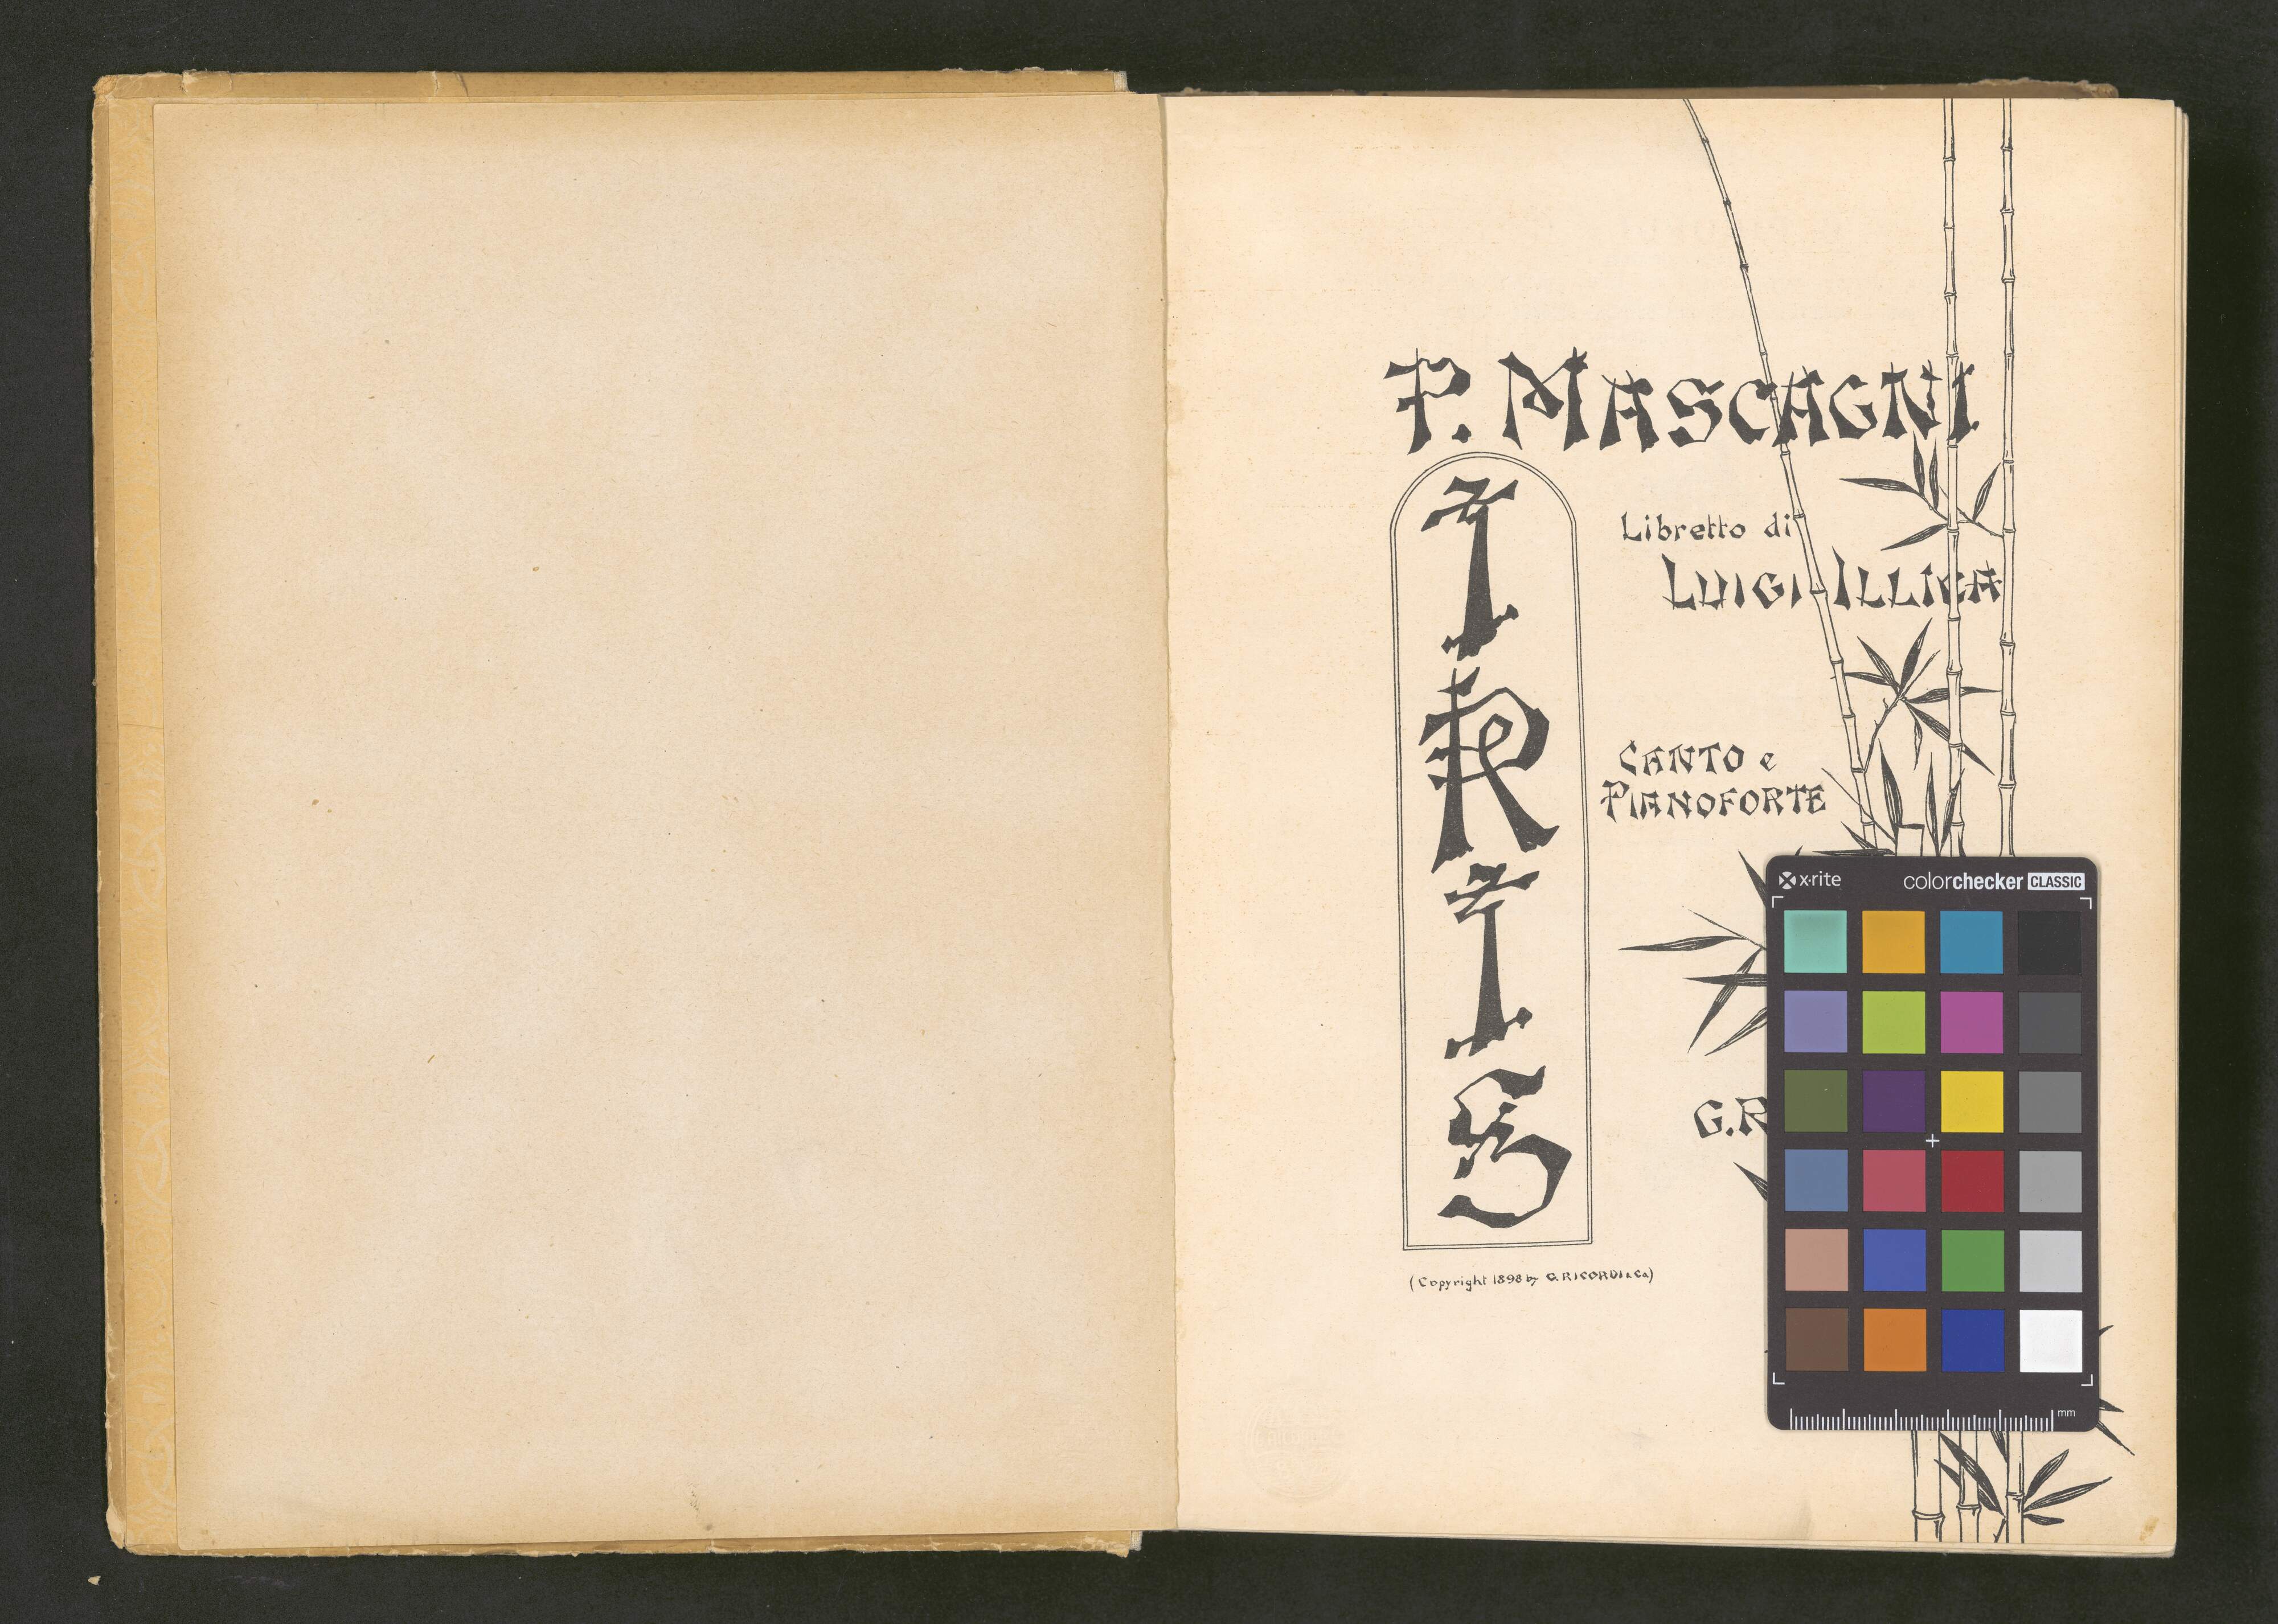 P. MASCAGNI
IRIS
Libretto di
LUIGI ILLICA
CANTO e
PIANOFORTE
G.R
(Copyright 1898 by G. RICORDI & Co)
x·rite colorchecker CLASSIC
mm